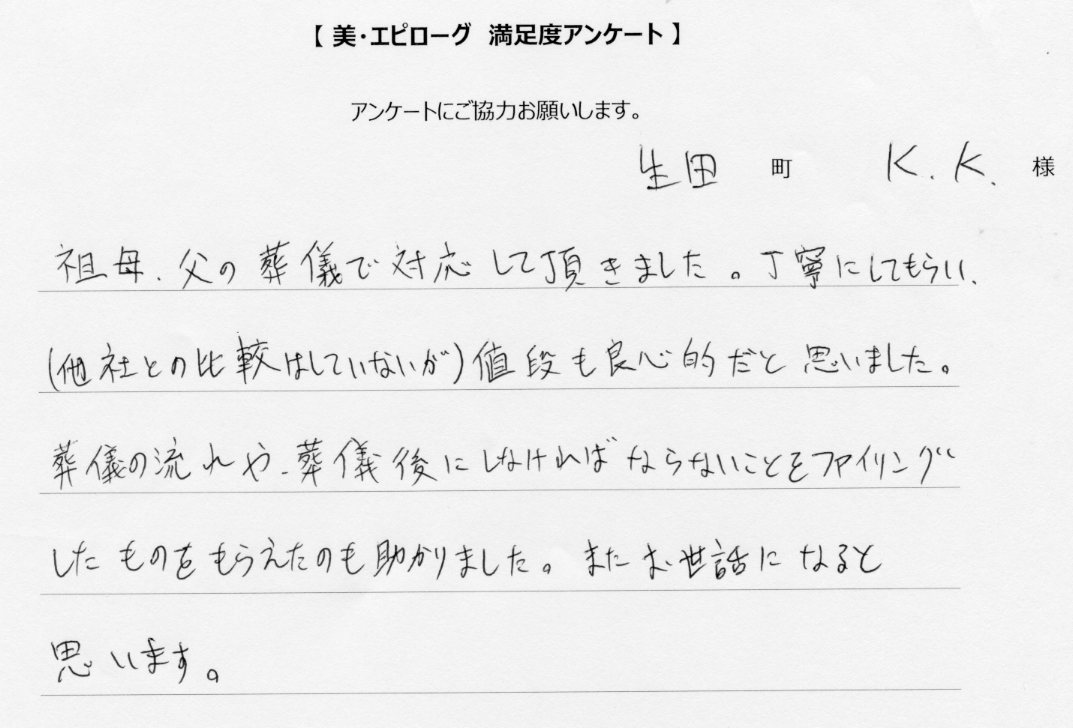 【 美・エピローグ 満足度アンケート 】
アンケートにご協力お願いします。
生田 町 K. K. 様
祖母、父の葬儀で対応して頂きました。丁寧にしてもらい、
(他社との比較はしていないが)値段も良心的だと思いました。
葬儀の流れや、葬儀後にしなければならないことをファイリング
したものをもらえたのも助かりました。またお世話になると
思います。